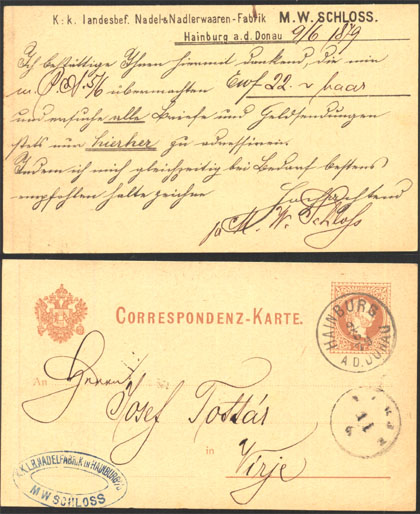 K. k. landesbef. Nadel- & Nadlerwaaren-Fabrik M. W. SCHLOSS.
Hainburg a. d. Donau 9/6 1879
Ich bestättige Ihnen hiermit dankend, die mir
übermachten baar
und ersuche alle Briefe und Geldsendungen
stets nur hierher zu adressiren.
Indem ich mich gleichzeitig bei Bedarf bestens
empfohlen halte zeichne
Hochachtend
M. W. Schloss
CORRESPONDENZ-KARTE.
HAINBURG
A. D. DONAU
An
Herrn
Josef Tottás
in
Virje
K.K.L.B. NADELFABRIK IN HAINBURG a/D
M W SCHLOSS